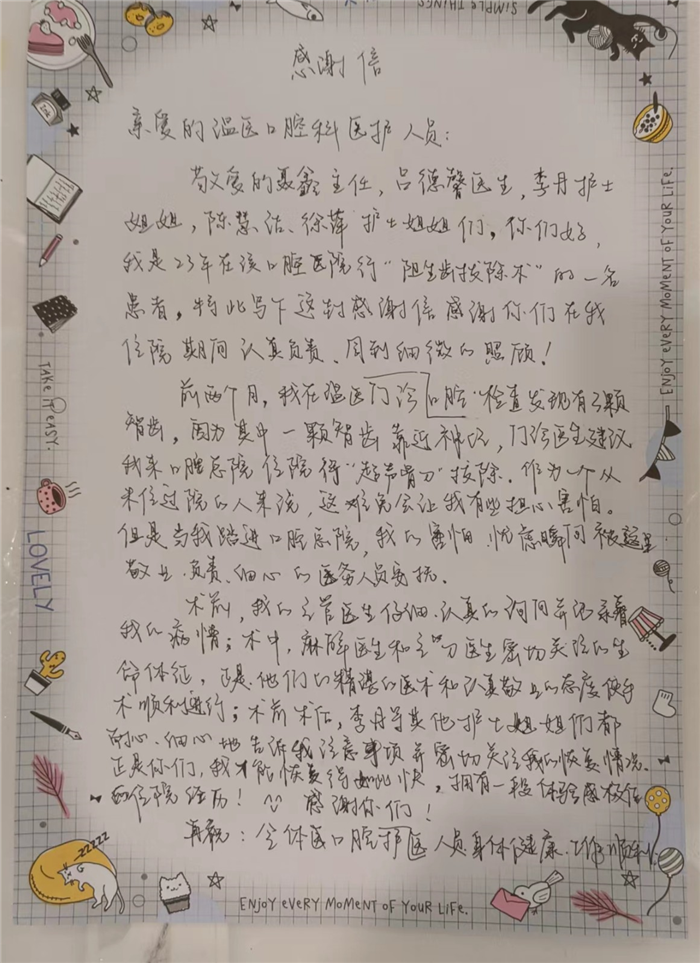 SIMPLE THINGS
感谢信
亲爱的温医口腔科医护人员：
敬爱的聂鑫主任，吕德馨医生，李丹护士
姐姐，陈慧洁、徐萍护士姐姐们，你们好，
我是23年在该口腔医院行“阻生齿拔除术”的一名
患者，特此写下这封感谢信感谢你们在我
住院期间认真负责、周到细微的照顾！
前两个月，我在温医门诊“口腔”检查发现有3颗
智齿，因为其中一颗智齿靠近神经，门诊医生建议
我来口腔总院住院行“超声骨刀”拔除。作为一个从
未住过院的人来说，这难免会让我有些担心害怕。
但是当我踏进口腔总院，我的害怕忧虑瞬间被这里
敬业、负责、细心的医务人员安抚。
术前，我的主管医生仔细、认真的询问并记录着
我的病情；术中，麻醉医生和主刀医生密切关注的生
命体征，正是他们的精湛的医术和认真敬业的态度使手
术顺利进行；术前术后，李丹等其他护士姐姐们都
耐心、细心地告诉我注意事项并密切关注我的恢复情况。
正是你们，我才能恢复得如此快，拥有一段体验感极佳
的住院经历！感谢你们！
再祝：全体医口腔护医人员身体健康、工作顺利
ENJOY EVERY MOMENT OF YOUR LIFE.
TAKE IT EASY.
LOVELY
ZZZZZ
ENJOY EVERY MOMENT OF YOUR LIFE.